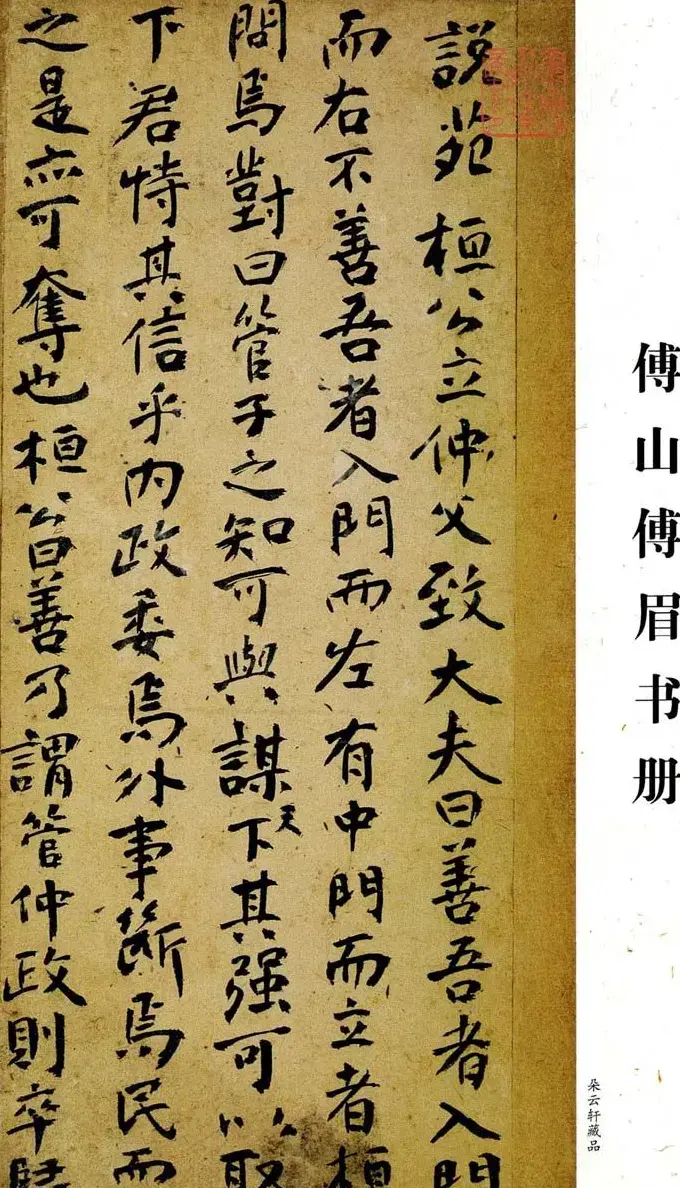 傅山傅眉书册
朵云轩藏品
説苑 桓公立仲父致大夫曰善吾者入門
而右不善吾者入門而左有中門而立者桓
問焉對曰管子之知可與謀天下其强可以取
下君恃其信乎内政委焉外事斷焉民而
之是亦可奪也桓公曰善乃謂管仲政則卒歸